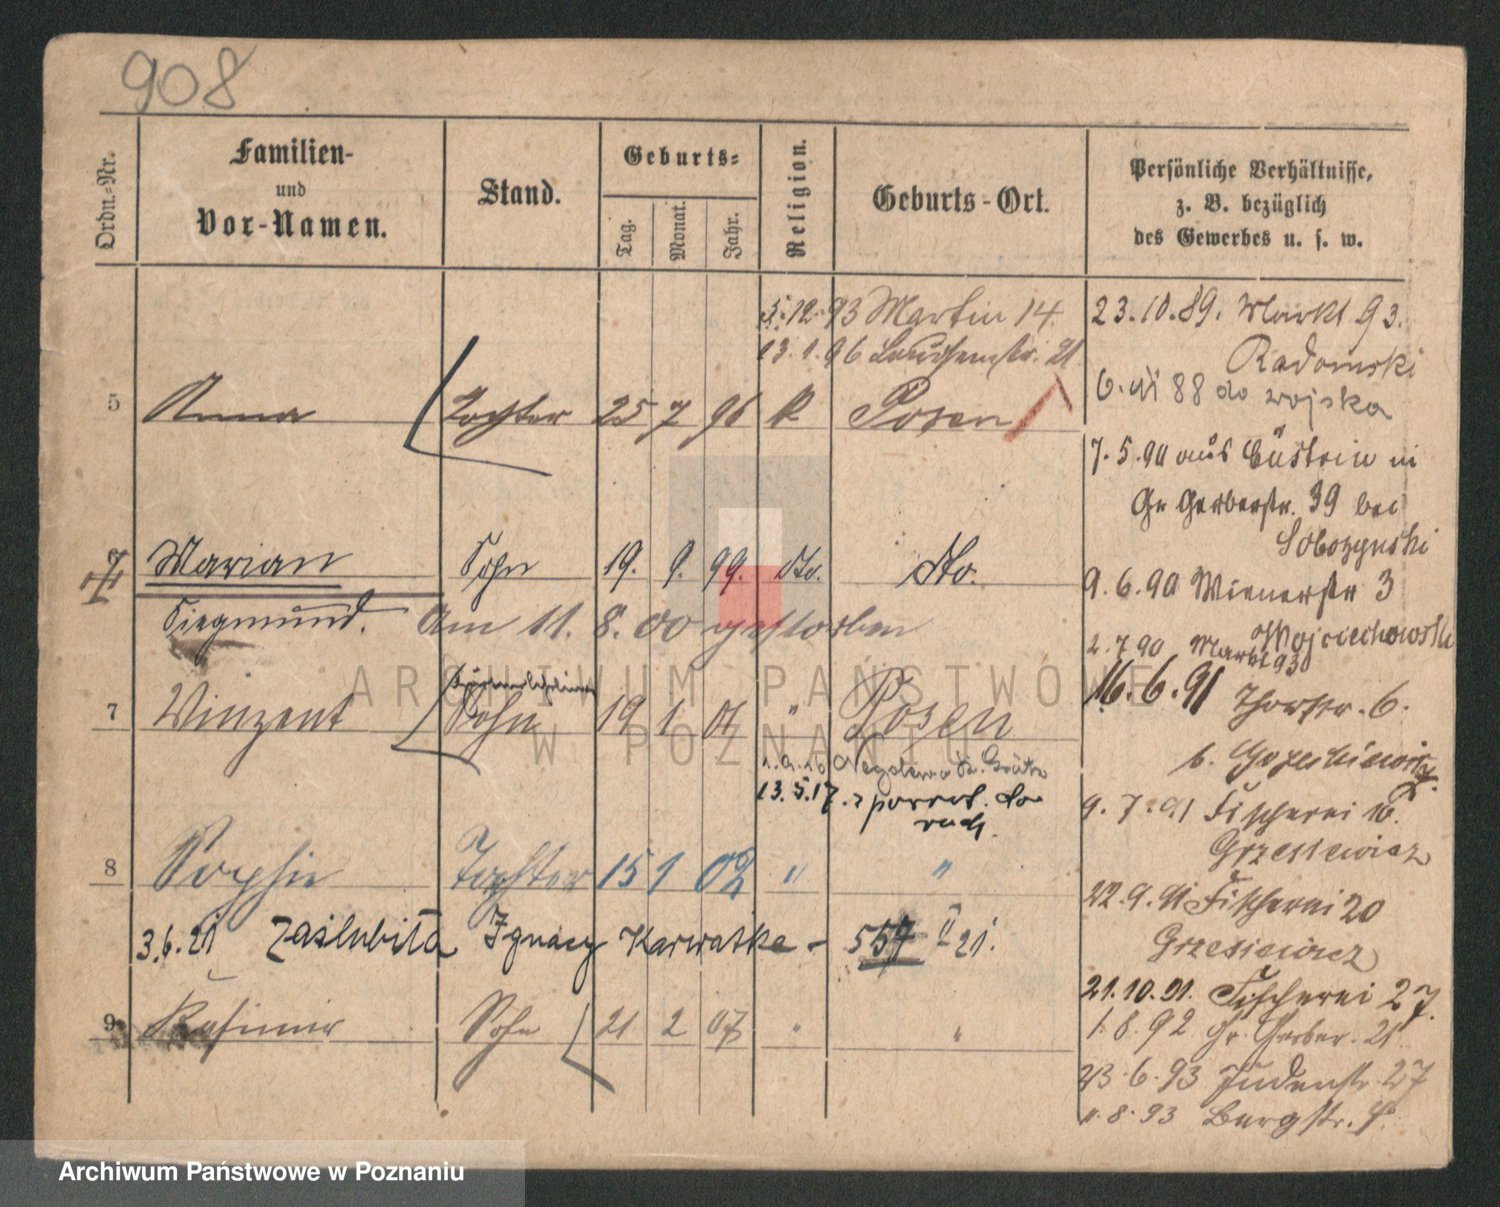 908
Ordn.-Nr.
Familien-
und
Vor-Namen.
Stand.
Geburts-
Tag.
Monat.
Jahr.
Religion.
Geburts-Ort.
Persönliche Verhältnisse,
z. B. bezüglich
des Gewerbes u. s. w.
5.12.93 Martin 14.
13.1.96 21
5 Anna Tochter 25 7 96 k. Posen
6 Marian Sohn 19. 9. 99. dto. dto.
Siegmund. Am 11. 8. 00 gestorben
7 Winzent Sohn 19 1 01 " Posen
13.5.17.
8 Sophie Tochter 15 1 02 " "
3.6.21 Zaślubiła Ignacy Karwatka - 557 II 21.
9 Kasimir Sohn 21 2 07 " "
23.10.89. Markt 93.
Radomski
6. XI 88 do wojska
7.5.90 aus Cüstrin in
Gr Gerberstr. 39 bei
Sobozynski
9.6.90 Wienerstr 3
Wojciechowski
2.7.90 Markt 93
16.6.91 Thorstr. 6.
b.
9.7.91 Fischerei 16.
Grzesiewicz
22.9.91 Fischerei 20
Grzesiewicz
21.10.91. Fischerei 27.
1.8.92 Gr. Gerber. 21.
23.6.93 Judenstr. 27
8.93 Bergstr.
ARCHIWUM PAŃSTWOWE
W POZNANIU
Archiwum Państwowe w Poznaniu